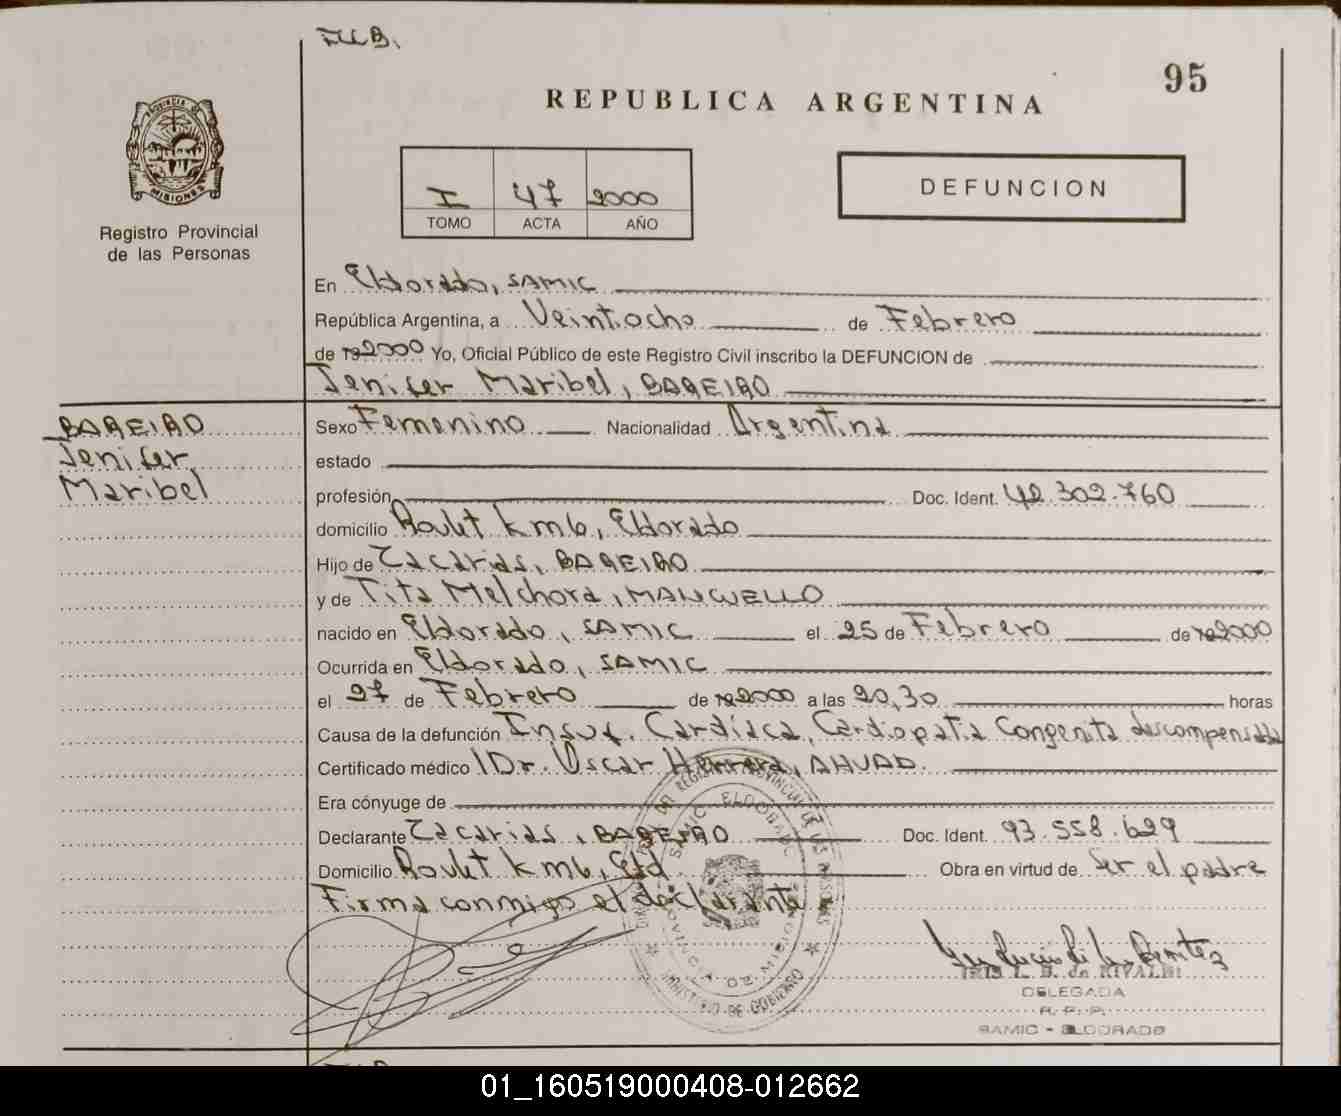 I.L.B.
95
REPUBLICA ARGENTINA
PROVINCIA DE MISIONES
Registro Provincial
de las Personas
I 47 2000
TOMO ACTA AÑO
DEFUNCION
En Eldorado, SAMIC
República Argentina, a Veintiocho de Febrero
de 2000 Yo, Oficial Público de este Registro Civil inscribo la DEFUNCION de
Jenifer Maribel, BAREIRO
BAREIRO
Jenifer
Maribel
Sexo Femenino Nacionalidad Argentina
estado
profesión Doc. Ident. 42.302.760
domicilio Roulet km6, Eldorado
Hijo de Zacarias, BAREIRO
y de Tita Melchora, MANCUELLO
nacido en Eldorado, SAMIC el 25 de Febrero de 2000
Ocurrida en Eldorado, SAMIC
el 27 de Febrero de 2000 a las 20,30 horas
Causa de la defunción Insuf. Cardíaca, Cardiopatia Congenita descompensada
Certificado médico Dr. Oscar Herrera, AHUAD.
Era cónyuge de
Declarante Zacarias, BAREIRO Doc. Ident. 93.558.629
Domicilio Roulet km6, Eld Obra en virtud de Ser el padre
Firma conmigo el declarante
SAMIC ELDORADO
PROVINCIA DE MISIONES
MINISTERIO DE GOBIERNO
IRIS L. B. de RIVALDI
DELEGADA
R. P. P.
SAMIC - ELDORADO
01_160519000408-012662